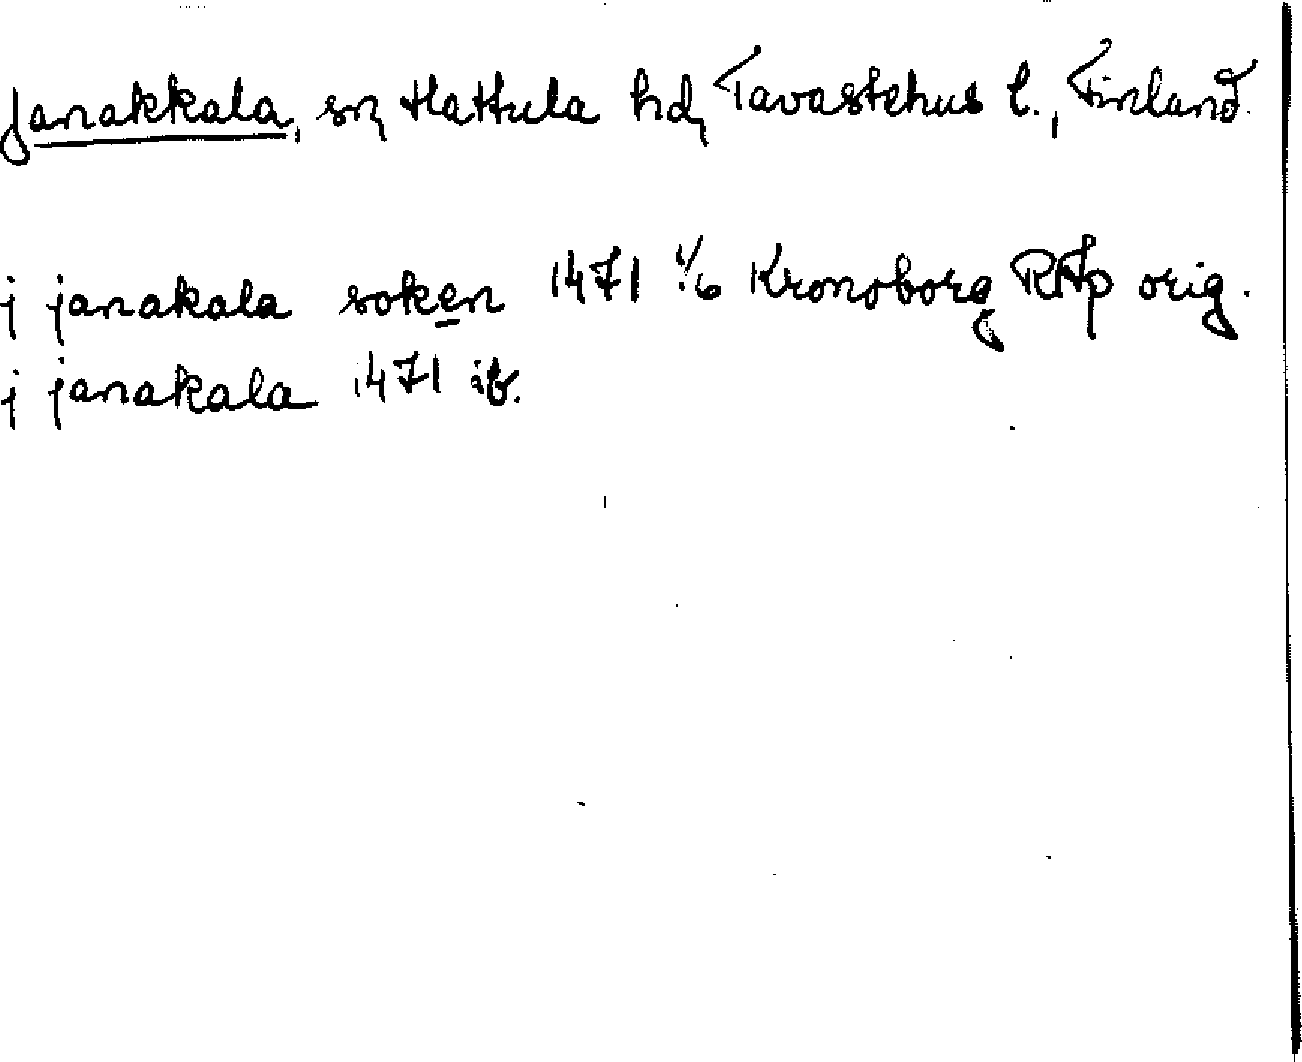 Janakkala, sn, Hattula hd, Tavastehus l., Finland.
j janakala soken 1471 1/6 Kronoborg RAp orig.
j janakala 1471 ib.